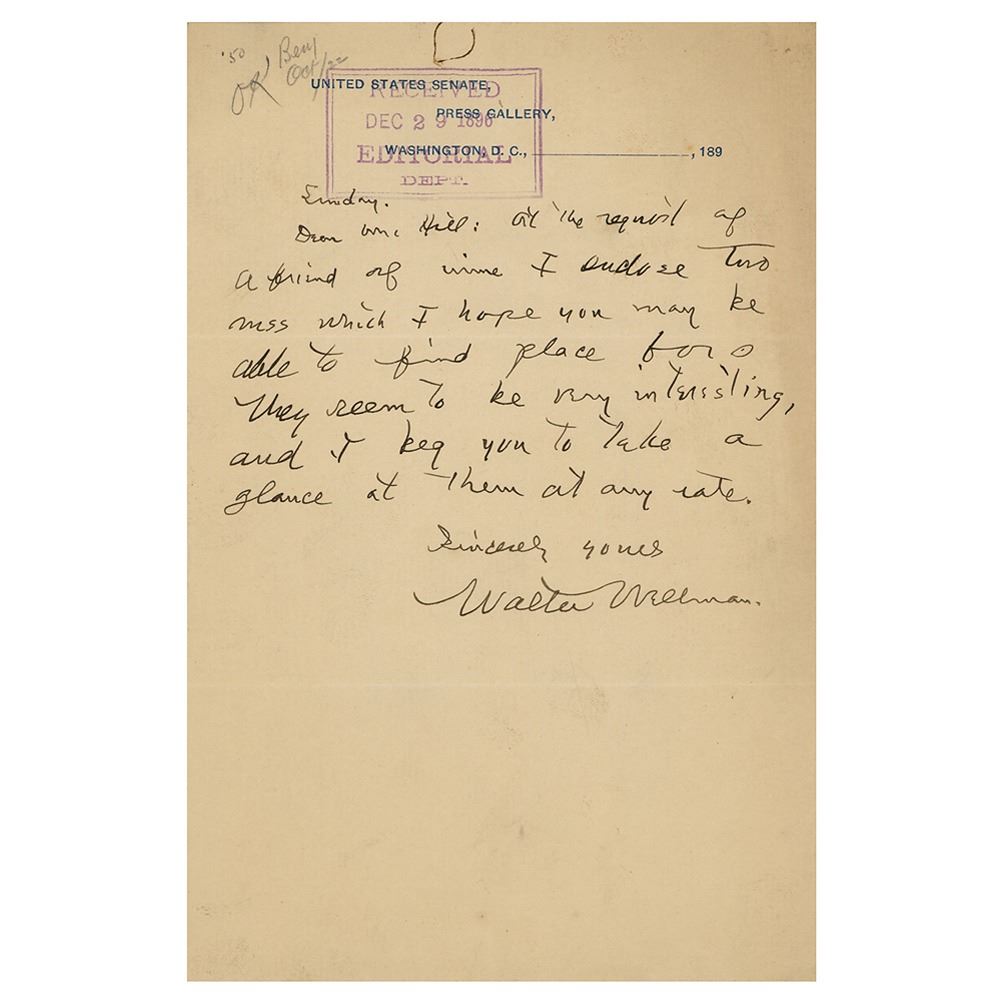 '50
OK
Oct/22
UNITED STATES SENATE,
PRESS GALLERY,
WASHINGTON, D. C., , 189
RECEIVED
DEC 29 1896
EDITORIAL
DEPT.
Sunday.
Dear Mr. Hill: At the request of
a friend of mine I enclose two
mss which I hope you may be
able to find place for.
They seem to be very interesting,
and I beg you to take a
glance at them at any rate.
Sincerely yours
Walter Wellman.